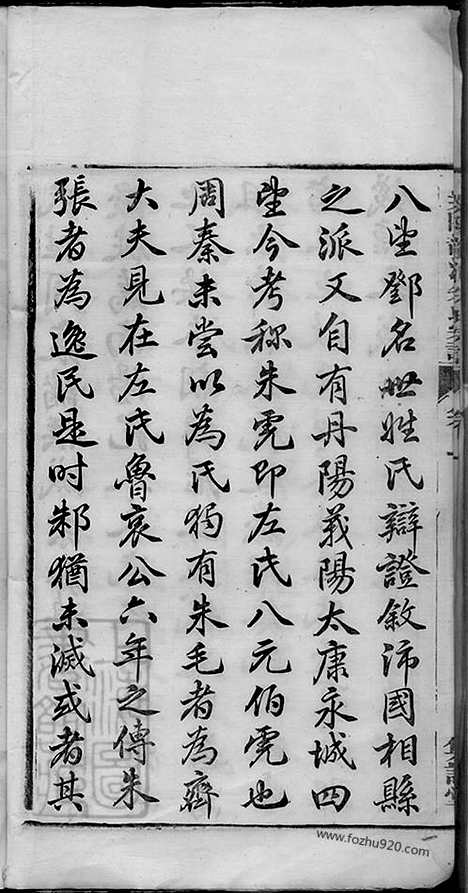 八望鄧名世姓氏辯證敘沛國相縣
之派又自有丹陽義陽太康永城四
望今考称朱虎即左氏八元伯虎也
周秦未嘗以為氏獨有朱毛者為齊
大夫見在左氏魯哀公六年之傳朱
張者為逸民是時邾猶未滅或者其
www.fozhu920.com